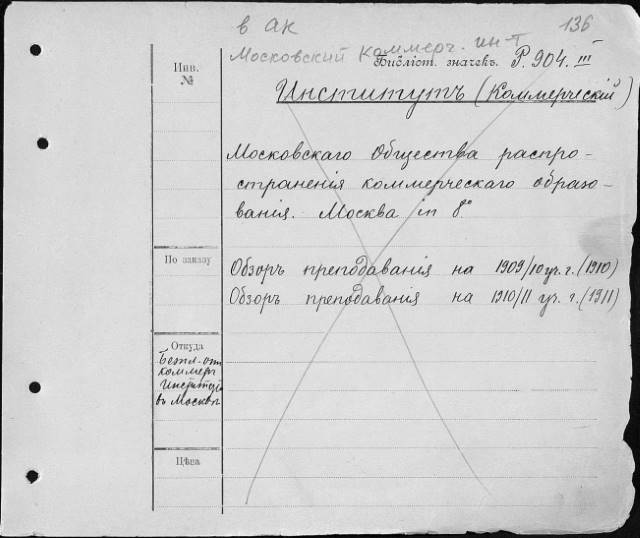 в АК
136
Московский Коммерч. ин-т
Библіот. значекъ. Р. 904. III
Инв.
№
Институтъ (Коммерческій)
Московскаго Общества распро-
страненія коммерческаго образо-
ванія. Москва in 8°
По заказу
Обзоръ преподаванія на 1909/10 уч. г. (1910)
Обзоръ преподаванія на 1910/11 уч. г. (1911)
Откуда
Коммерч
Института
въ Москвѣ
Цѣна